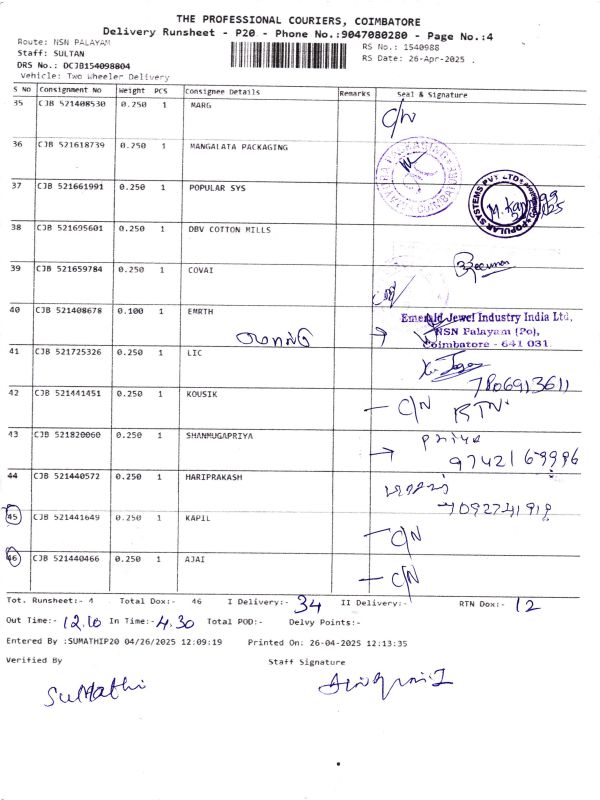 THE PROFESSIONAL COURIERS, COIMBATORE
Delivery Runsheet - P20 - Phone No.:9047080280 - Page No.:4
Route: NSN PALAYAM
Staff: SULTAN
DRS No.: DCJB154098804
Vehicle: Two Wheeler Delivery
RS No.: 1540988
RS Date: 26-Apr-2025 .
S No Consignment No Weight PCS Consignee Details Remarks Seal & Signature
35 CJB 521408530 0.250 1 MARG C/N
36 CJB 521618739 0.250 1 MANGALATA PACKAGING
37 CJB 521661991 0.250 1 POPULAR SYS
POPULAR SYSTEMS PVT LTD
38 CJB 521695601 0.250 1 DBV COTTON MILLS
39 CJB 521659784 0.250 1 COVAI
40 CJB 521408678 0.100 1 EMRTH
Emerald Jewel Industry India Ltd,
NSN Palayam (Po),
Coimbatore - 641 031.
41 CJB 521725326 0.250 1 LIC
7806913611
42 CJB 521441451 0.250 1 KOUSIK - C/N RTN
43 CJB 521820060 0.250 1 SHANMUGAPRIYA Priya
9742169996
44 CJB 521440572 0.250 1 HARIPRAKASH
7092741918
45 CJB 521441649 0.250 1 KAPIL - C/N
46 CJB 521440466 0.250 1 AJAI - C/N
Tot. Runsheet:- 4 Total Dox:- 46 I Delivery:- 34 II Delivery:- RTN Dox:- 12
Out Time:- 12.10 In Time:- 4.30 Total POD:- Delvy Points:-
Entered By :SUMATHIP20 04/26/2025 12:09:19 Printed On: 26-04-2025 12:13:35
Verified By Staff Signature
SuMathi